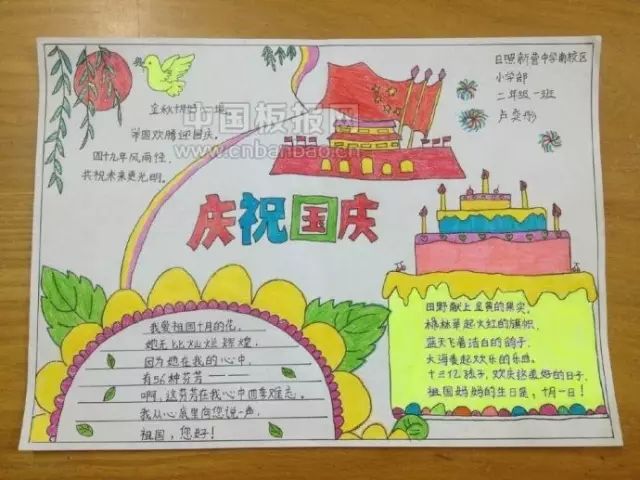 日照新营中学南校区
小学部
二年级一班
卢奕彤
金秋
举国欢腾迎国庆。
四十九年风雨径，
共祝未来更光明。
中国板报网
www.cnbanbao.cn
庆祝国庆
我爱祖国十月的花，
她无比灿烂辉煌，
因为她在我的心中，
有56种芬芳———
啊，这芬芳在我心中四季难忘。
我从心底里向您说一声，
祖国，您好！
田野献上金黄的果实，
枫林举起火红的旗帜，
蓝天飞着洁白的鸽子，
大海奏起欢乐的乐曲。
十三亿孩子，欢庆这美好的日子，
祖国妈妈的生日是，十月一日！